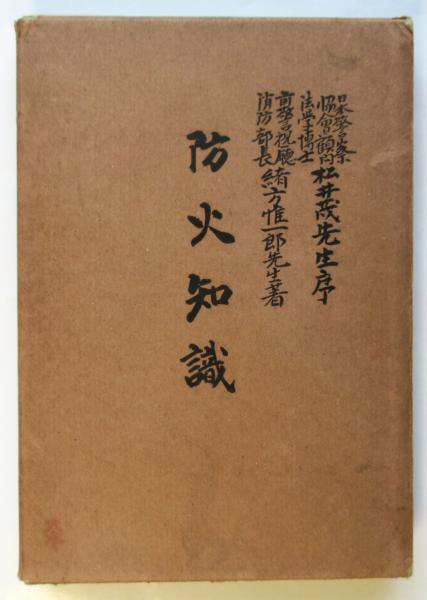 日本警察
協會顧問
法學博士
松井茂先生序
前警視廳
消防部長
緒方惟一郎先生著
防火知識